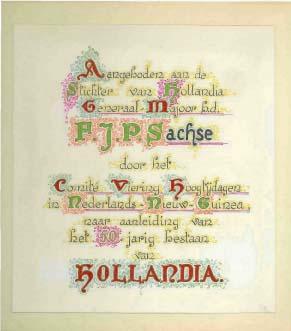 Aangeboden aan de
Stichter van Hollandia
Generaal-Majoor b.d.
FJPSachse
door het
Comité Viering Hoogtijdagen
in Nederlands-Nieuw-Guinea,
naar aanleiding van
het 50 jarig bestaan
van
HOLLANDIA.